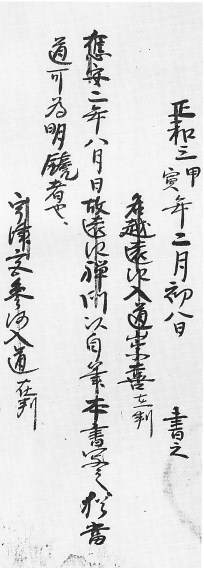 正和三甲寅年二月初八日 書之
名越遠江入道崇喜在判
應安二年八月日故遠江禪門以自筆本書写之 當
道可為明鏡者也、
宇津宮参河入道在判